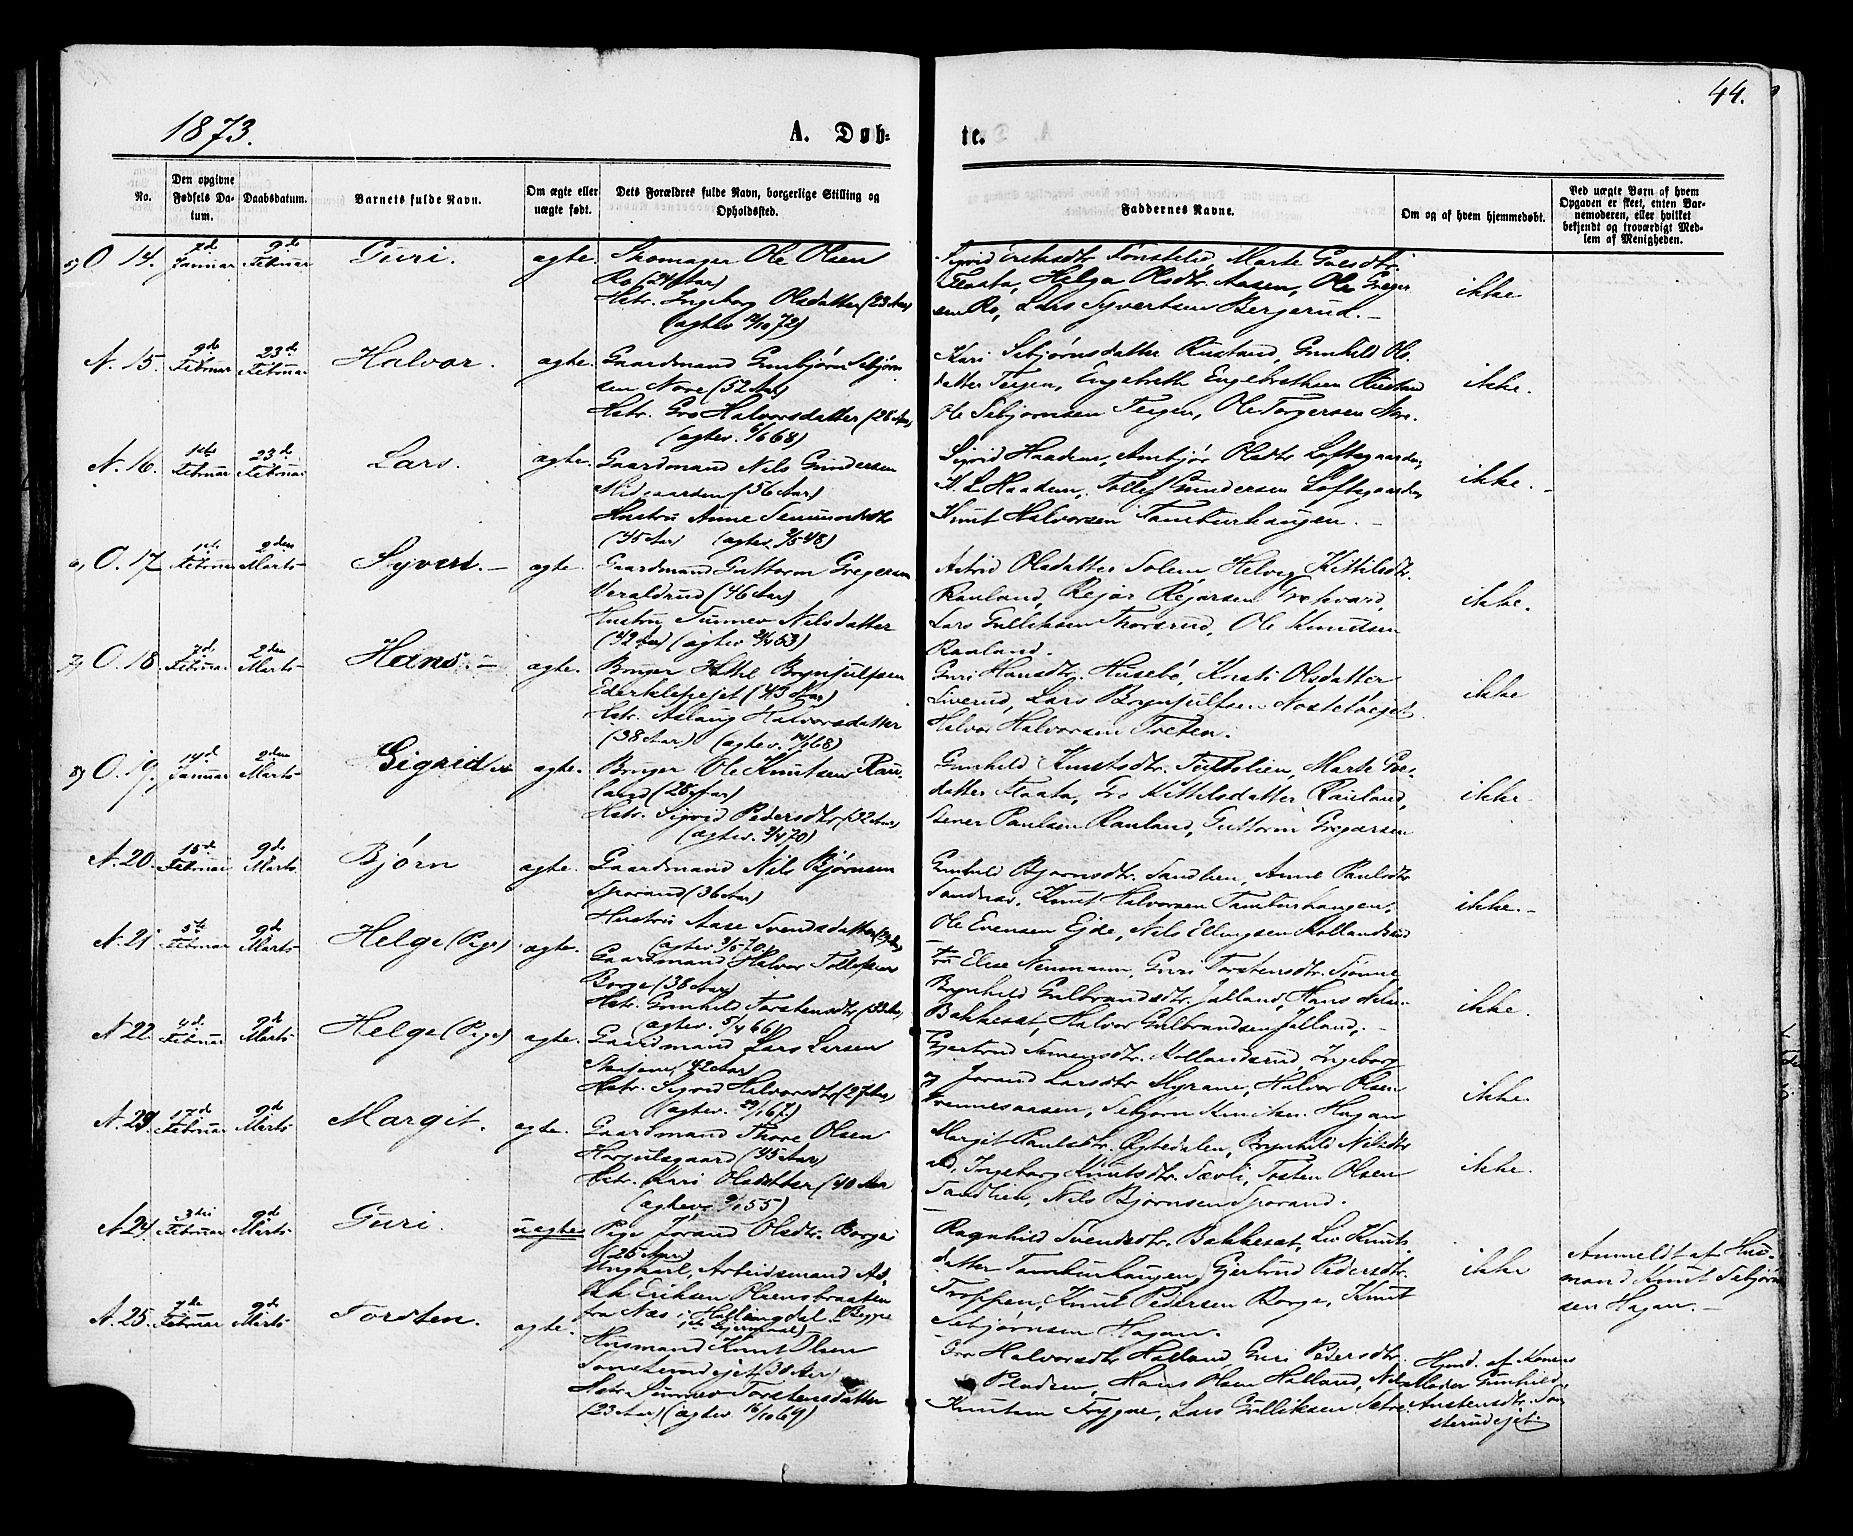 44.
1873.
A. Døb-
te.
No.
Den opgivne
Fødsels Da-
tum.
Daabsdatum.
Barnets fulde Navn.
Om ægte eller
uægte født.
Dets Forældres fulde Navn, borgerlige Stilling og
Opholdssted.
Faddernes Navne.
Om og af hvem hjemmedøbt.
Ved uægte Børn af hvem
Opgaven er skeet, enten Bar-
nemoderen, eller hvilket
bekjendt og troværdigt Med-
lem af Menigheden.
O 14.
2d
Januar
9de
Februar
Guri.
ægte.
Skomager Ole Olsen
Ro (24 Aar)
Hstr. Ingeborg Olsdatter (23 Aar)
Sigrid Eriksdtr. Marte
Helga Olsdtr. Aasen, Ole Greger
sen Ro, Lars Syvertsen Bergerud. -
ikke
N. 15.
9de
Februar
23de
Februar
Halvor.
ægte.
Gaardmand Gunbjørn Sebjørn
sen Nore (52 Aar)
Hstr. Gro Halvorsdatter (28 Aar)
(ægtev. 6/6 68)
Kari Sebjørnsdatter Rustand, Gunhild Ols
datter Tergen, Engebreth Engebrethsen Rustand
Ole Sebjørnsen Tergen, Ole Torgersen Nore.
ikke.
N. 16.
1ste
Februar
23de
Februar
Lars.
ægte.
Gaardmand Nils Gundersen
Midgaarden (56 Aar)
Hustru Anne Simonsdtr
(45 Aar) (ægtev. 3/5 48)
Sigrid Haadem, Ambjør Olsdtr Loftsgaarden,
K. L. Haadem, Tollef Gundersen Loftsgaarden
Knut Halvorsen Tamburhaugen. -
ikke. -
O. 17
1ste
Februar
2den
Marts
Syvert. -
ægte.
Gaardmand Guttorm Gregersen
Veraldrud (46 Aar)
Hustru Sunnev Nilsdatter
(42 Aar)
Astrid Olsdatter Solem, Helvig Kittilsdtr.
Rauland, Rejar Rejarsen
Lars Gulliksen Thorsrud, Ole Knudsen
Rauland.
ikke.
O. 18.
7d
Februar
2den
Marts
Hans. -
ægte.
Bruger Kittil Brynjulfsen
(43 Aar)
Hstr. Aslaug Halvorsdatter
(38 Aar)
Guri Hansdtr. Husebö, Kristi Olsdatter
Siverud, Lars Brynjulfsen
Halvor Halvorsen Treten.
ikke
O. 19.
14d
Januar
2den
Marts
Sigrid
ægte.
Bruger Ole Knutsen Rau-
land (28 Aar)
Hstr. Sigrid Pedersdtr (32 Aar)
Gunhild Knutsdtr. Marte
datter Flaata, Gro Kittilsdatter Rauland,
Paulsen Rauland, Guttorm Gregersen
ikke
N. 20.
15d
Februar
9de
Marts
Bjørn
ægte.
Gaardmand Nils Bjørnsen
Sporand (36 Aar)
Hustru Aase Svendsdatter
Gunhild Bjørnsdtr. Sandlien, Anne Paulsdtr
Sandnes, Knut Halvorsen Tamburhaugen,
Ole Evensen Ejde, Nils Ellingsen Kollandsrud
ikke. -
N. 21
5te
Februar
9de
Marts
Helge (Pige)
ægte.
Gaardmand Halvor Tollefsen
Borge (38 Aar)
Hstr. Gunhild Torstensdtr
(ægtev. 5/4 66)
Fru Elise Neumann, Guri Torstensdtr.
Brynhild Gulbrandsdtr. Jalland, Hans
Bakkesat, Halvor Gulbrandsen Jalland. -
ikke.
N 22.
4de
Februar
9de
Marts
Helge (Pige)
ægte.
Gaardmand Lars Larsen
(42 Aar)
Hstr. Sigrid Halvorsdtr (27 Aar)
(ægtev. 29/1 67.)
Gjertrud Simensdtr. Kollandsrud, Ingeborg
og Jorand Larsdtr Myrane, Halvor Olsen
Sebjørn Knutsen Hagan
ikke.
N. 23.
17d
Februar
9de
Marts
Margit.
ægte.
Gaardmand Thore Olsen
(45 Aar)
Hstr. Kari Olsdatter (40 Aar
Margit Paulsdtr. Brynhild Nilsdtr
Ingeborg Knutsdtr. Sævli, Tosten Olsen
Sandlien, Nils Bjørnsen Sporand.
ikke.
N 24.
3die
Februar
9de
Marts
Guri.
uægte.
Pige Jorand Olsdtr. Borge
(25 Aar)
Ungkarl, Arbeidsmand As-
lak Eriksen
fra Næs i Hallingdal. Begges
1ste Leiermaal -
Ragnhild Svendsdtr. Bakkesat, Liv Knuts
datter Tamburhaugen, Gjertrud Pedersdtr.
Troppen, Knut Pedersen Borge, Knut
Sebjørnsen Hagan.
ikke
Anmeldt af Hus-
mand Knut Sebjørn
sen Hagan. -
N. 25.
Februar
9de
Marts
Torsten.
ægte.
Husmand Knut Olsen
Sønsterudejet (30 Aar)
Hstr. Sunnev Torstensdatter
(23 Aar) (ægtev 16/10 69)
Gro Halvorsdtr Halland, Guri Pedersdtr.
Hans Olsen Halland, Nils
Knutsen Trygne, Lars Gulliksen
Hjmd. af Konens
Moder Gunhild
Austensdtr. Søn
sterudejet